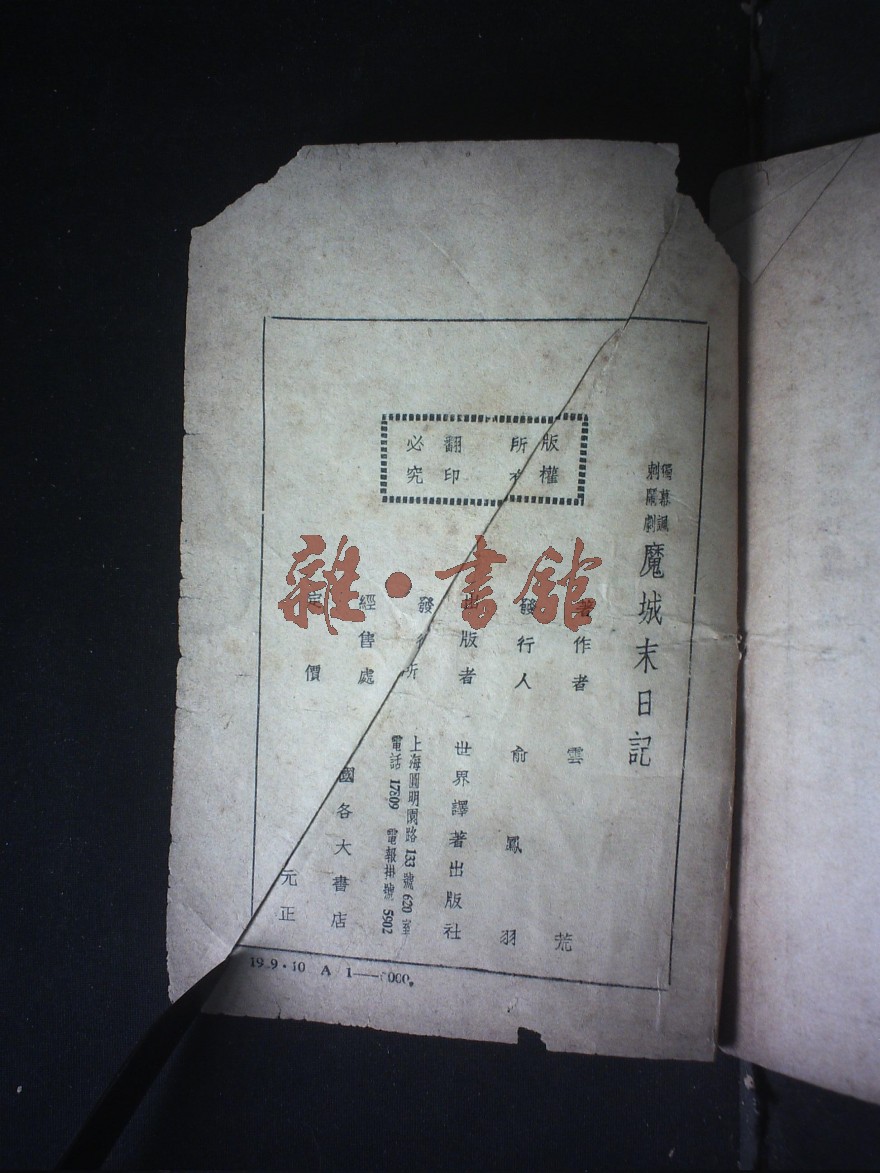 獨幕諷
刺鬧劇
魔城末日記
著作者 雲荒
發行人 俞鳳羽
出版者 世界譯著出版社
發行所
上海圓明園路133號620室
電話 17309 電報掛號 5902
經售處 國各大書店
定價 元正
版權
所有
翻印
必究
19 9·10 A 1—— 000
雜·書館